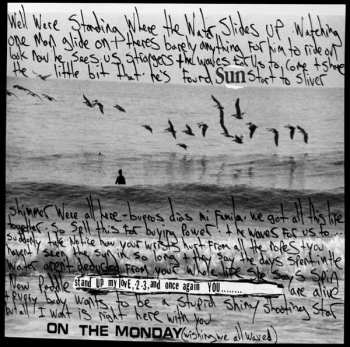 Well Were Standing Where the Water Slides UP Watching
one Man glide on theres barely anything For him to ride on
look now he sees us strangers the waves For us to Come + Share
the little bit that he's Found Sun start to Sliver
Shimmer Were all here buenos dias mi Familia we got all this life
together. So Spill this For buying Power + the waves For us to...
Suddenly take Notice how your wrists hurt From all the ropes you
havent seen the sun in so long + they say the days spent in the
Water arent deducted From your whole life she says
Now People stand up my lovE, 2.3, and once again YOU........ are alive
+ Every body wants to be a stupid shiny Shooting Star
but all I want is right here with you
ON THE MONDAY (wishing we all waved)